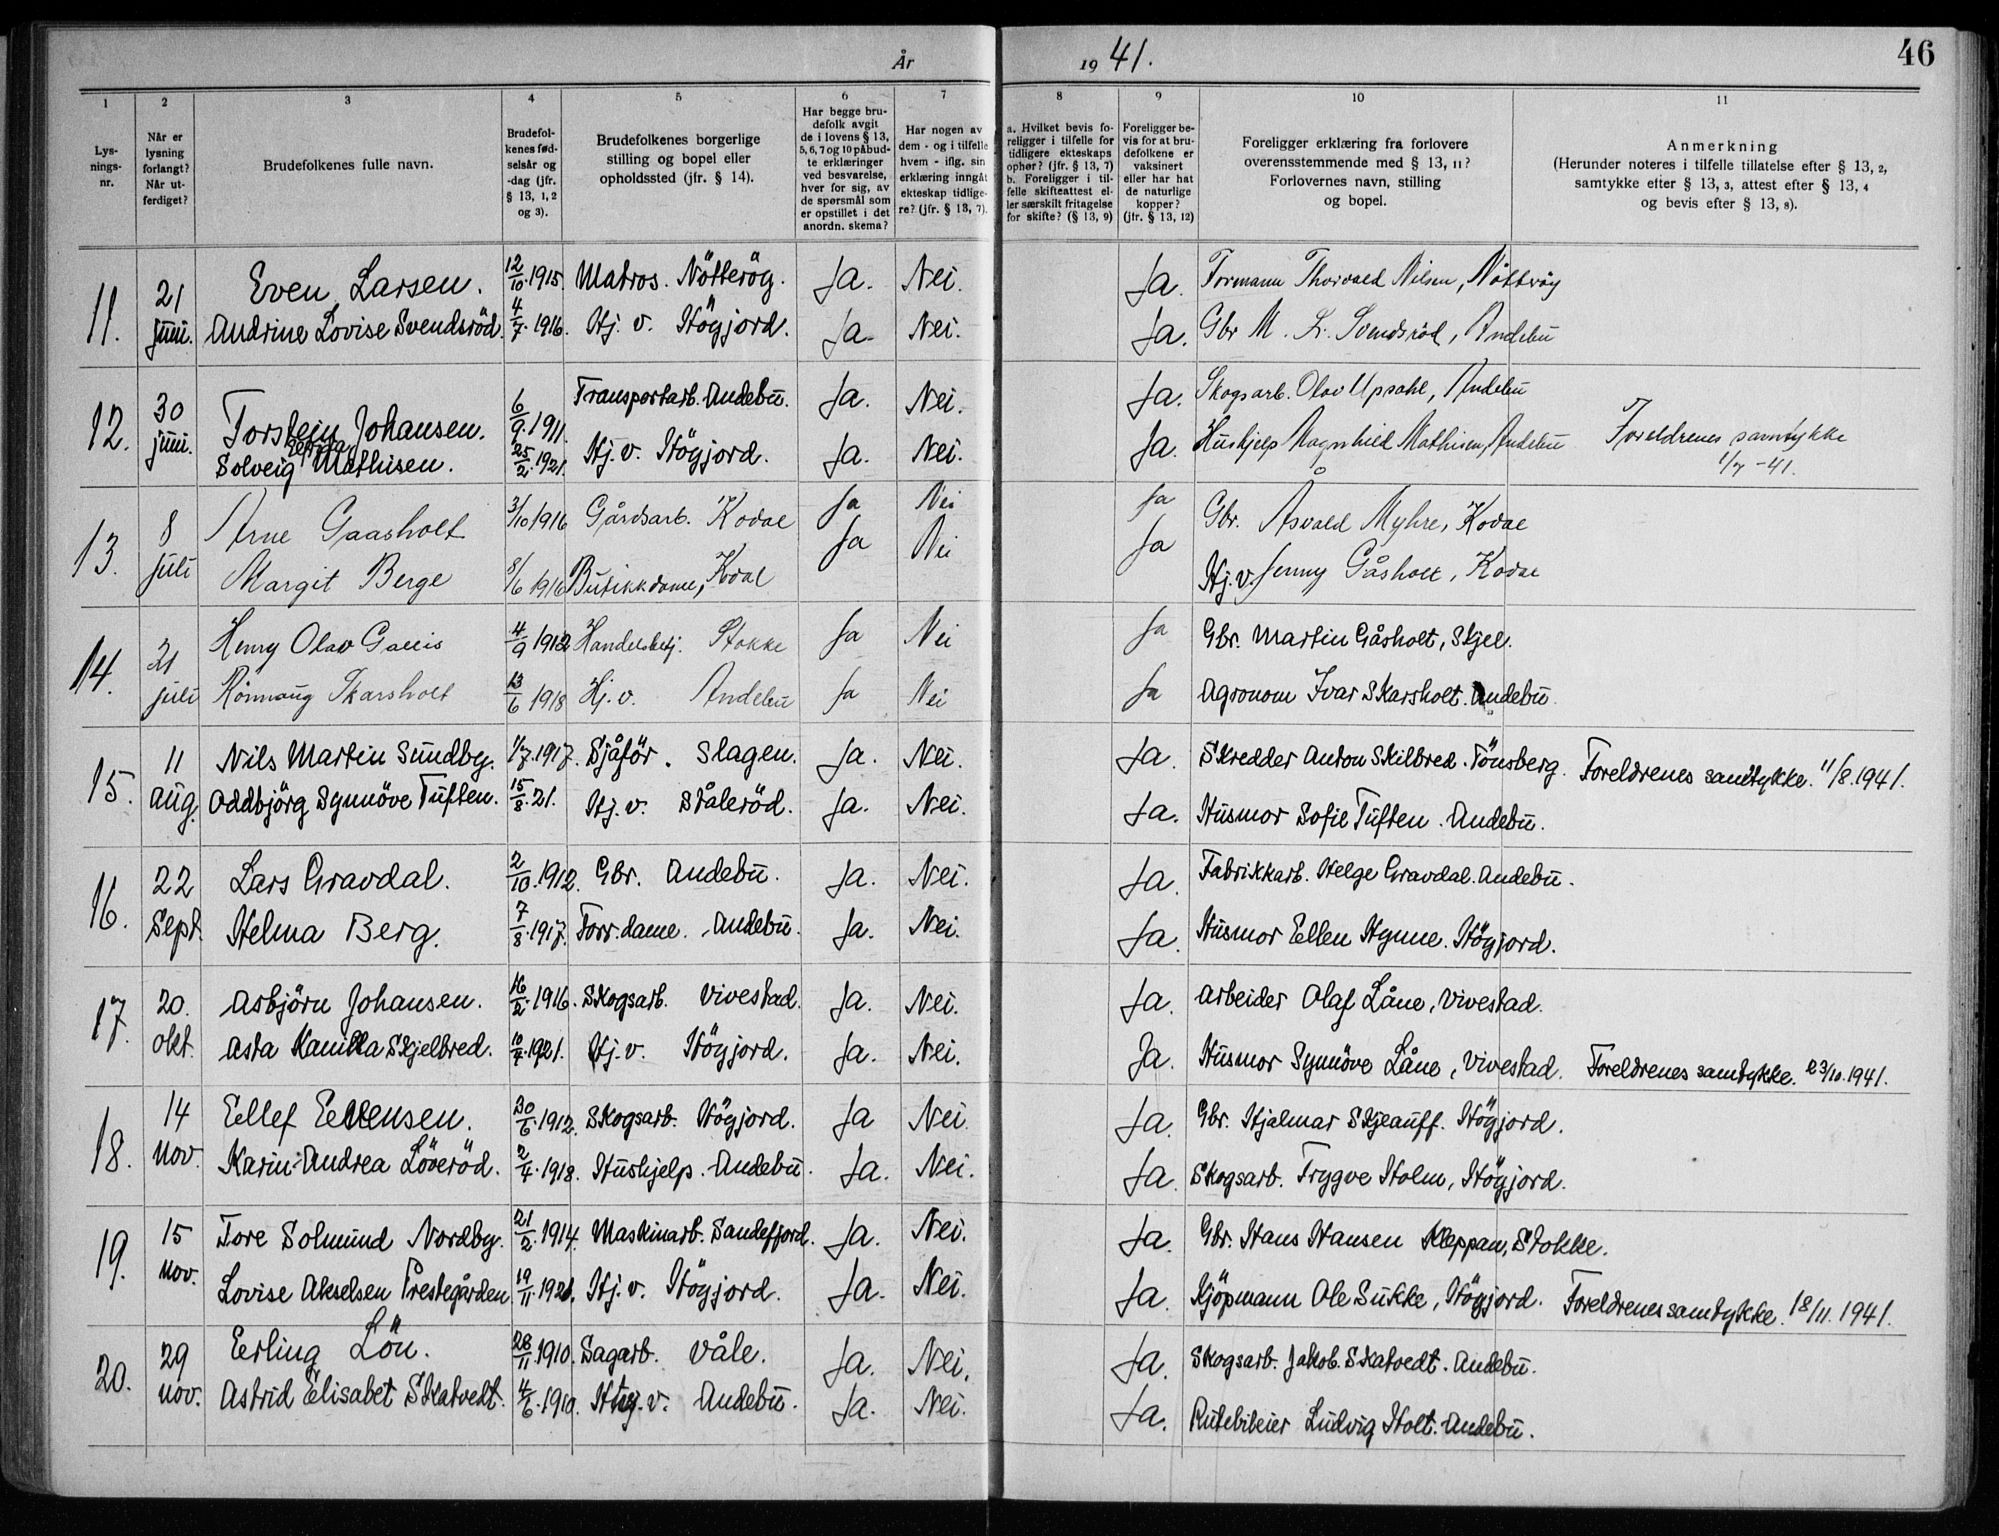 År 1941.
46
1 2 3 4 5 6 7 8 9 10 11
Lysnings-nr.
Når er lysning forlangt? Når utferdiget?
Brudefolkenes fulle navn.
Brudefolkenes fødselsår og -dag (jfr. § 13, 1, 2 og 3).
Brudefolkenes borgerlige stilling og bopel eller opholdssted (jfr. § 14).
Har begge brudefolk avgit de i lovens § 13, 5, 6, 7 og 10 påbudte erklæringer ved besvarelse, hver for sig, av de spørsmål som er opstillet i det anordn. skema?
Har nogen av dem - og i tilfelle hvem - iflg. sin erklæring inngåt ekteskap tidligere? (jfr. § 13, 7).
a. Hvilket bevis foreligger i tilfelle for tidligere ekteskaps ophør? (jfr. § 13, 7) b. Foreligger i tilfelle skifteattest eller særskilt fritagelse for skifte? (§ 13, 9)
Foreligger bevis for at brudefolkene er vaksinert eller har hat de naturlige kopper? (jfr. § 13, 12)
Foreligger erklæring fra forlovere overensstemmende med § 13, 11? Forlovernes navn, stilling og bopel.
Anmerkning (Herunder noteres i tilfelle tillatelse efter § 13, 2, samtykke efter § 13, 3, attest efter § 13, 4 og bevis efter § 13, 8).
11. 21 Even Larsen. 12/10.1915. Matros. Nötteröy. Ja. Nei. Ja. Formann Thorvald Nilsen, Nötteröy
juni. Andrine Lovise Svendsröd. 4/7.1916. Hj. v. Högjord. Ja. Nei. Ja. Gbr M. Kr. Svendsröd, Andebu
12. 30 Torstein Johansen. 6/9.1911. Transportarb. Andebu. Ja. Nei. Ja. Skogsarb. Olav Upsahl, Andebu
juni. Solveig Mathisen. 25/2.1921. Hj. v. Högjord. Ja. Nei. Ja. Hushjelp Magnhild Mathisen, Andebu Foreldrenes samtykke 1/7 -41.
13. 8 Arne Gaasholt 3/10 1916 Gårdsarb. Kodal Ja Nei Ja Gbr. Åsvald Myhre, Kodal
juli Margit Berge 8/6 1916 Butikkdame, Kodal Ja Nei Ja Hj. v. Jenny Gåsholt, Kodal
14. 21 Henry Olav Gallis 4/9 1912 Handelsbetj. Stokke Ja Nei Ja Gbr. Martin Gåsholt, Skjel.
juli Rönnaug Skarsholt 13/6 1918 Hj. v. Andebu Ja Nei Ja Agronom Ivar Skarsholt. Andebu.
15. 11 Nils Martin Sundby. 1/7.1917. Sjåför. Slagen. Ja. Nei. Ja. Skredder Anton Skilbred. Tönsberg. Foreldrenes samtykke. 11/8.1941.
aug. Oddbjörg Synnöve Tuften. 15/8.21. Hj. v. Ståleröd. Ja. Nei. Ja. Husmor Sofie Tuften. Andebu.
16. 22 Lars Gravdal. 2/10.1912. Gbr. Andebu. Ja. Nei. Ja. Fabrikkarb. Helge Gravdal. Andebu.
Sept. Helma Berg. 7/8.1917. Forr.dame. Andebu. Ja. Nei. Ja. Husmor Ellen Hynne. Högjord.
17. 20. Asbjörn Johansen. 16/2.1916. Skogsarb. Vivestad. Ja. Nei. Ja. Arbeider Olaf Låne, Vivestad.
okt. Asta Kamilla Skjelbred. 10/4.1921. Hj. v. Högjord. Ja. Nei. Ja. Husmor Synnöve Låne, Vivestad. Foreldrenes samtykke. 23/10.1941.
18. 14 Ellef Ellensen. 30/6.1912. Skogsarb. Högjord. Ja Nei. Ja. Gbr. Hjalmar Skjeauff. Högjord.
nov. Karin Andrea Löveröd. 2/4.1918. Hushjelp. Andebu. Ja. Nei. Ja. Skogsarb. Trygve Holm, Högjord.
19. 15 Tore Solmund Nordby. 21/2.1914. Maskinarb. Sandefjord. Ja. Nei. Ja. Gbr. Hans Hansen Kleppan, Stokke.
nov. Lovise Akselsen Prestegården 19/11.1921. Hj. v. Högjord. Ja. Nei. Ja. Kjöpmann Ole Sukke, Högjord. Foreldrenes samtykke. 18/11.1941.
20. 29 Erling Lön. 28/11.1910. Sagarb. Våle. Ja. Nei. Ja. Skogsarb. Jakob Skatvedt. Andebu.
nov. Astrid Elisabet Skatvedt. 4/6.1910. Hj. v. Andebu. Ja. Nei. Ja. Rutebileier Ludvig Holt. Andebu.